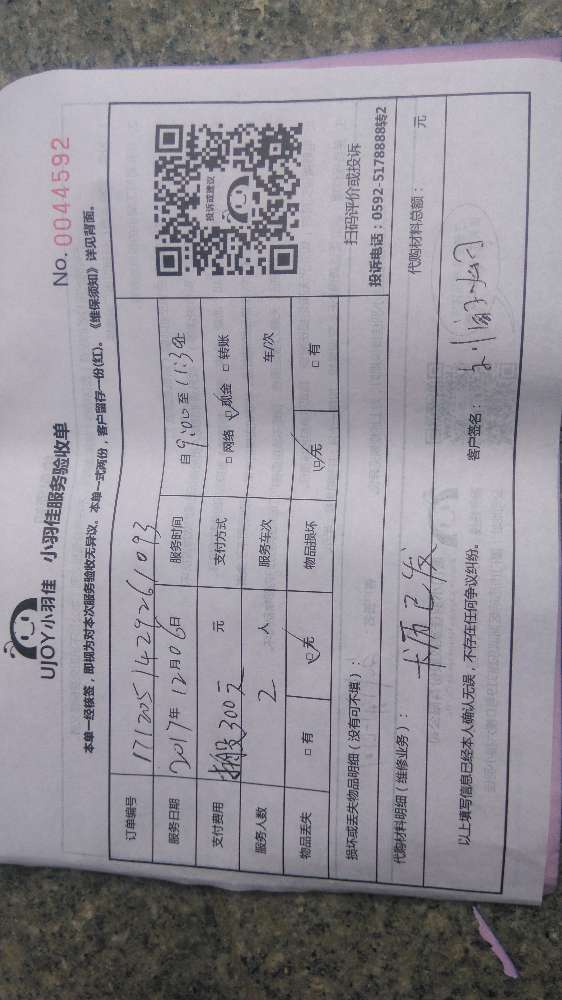 UJOY小羽佳 小羽佳服务验收单
No. 0044592
本单一经核签，即视为对本次服务验收无异议。本单一式两份，客户留存一份(红)。《维保须知》详见背面。
订单编号 1712051429261093
服务日期 2017年12月06日 服务时间 自9:00至11:30止
支付费用 搬300元 元 支付方式 □网络 ☑现金 □转账
服务人数 2 人 服务车次 车/次
物品丢失 □有 ☑无 物品损坏 ☑无 □有
投诉或建议
扫码评价或投诉
投诉电话：0592-5178888转2
损坏或丢失物品明细（没有可不填）：
代购材料明细（维修业务）： 代购材料总额： 元
已发
以上填写信息已经本人确认无误，不存在任何争议纠纷。 客户签名：